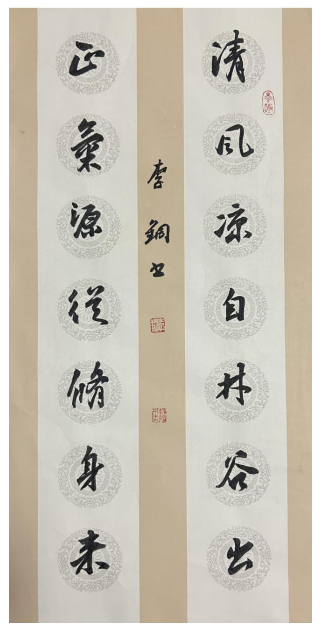 清风凉自林谷出
正氣源從脩身来
李鋼書